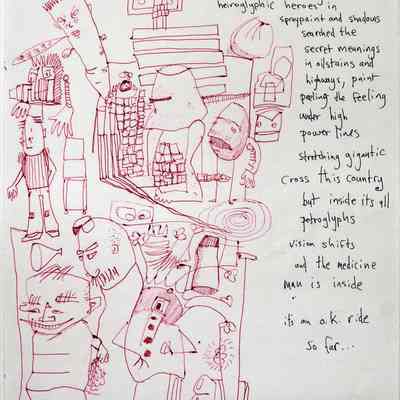 heiroglyphic heroes in
spraypaint and shadows
sarched the
secret meanings
in oilstains and
highways, paint
peeling the feeling
under high
power lines
stretching gigantic
cross this country
but inside its all
petroglyphs
vision shifts
and the medicine
man is inside
its an o.k. ride
so far...